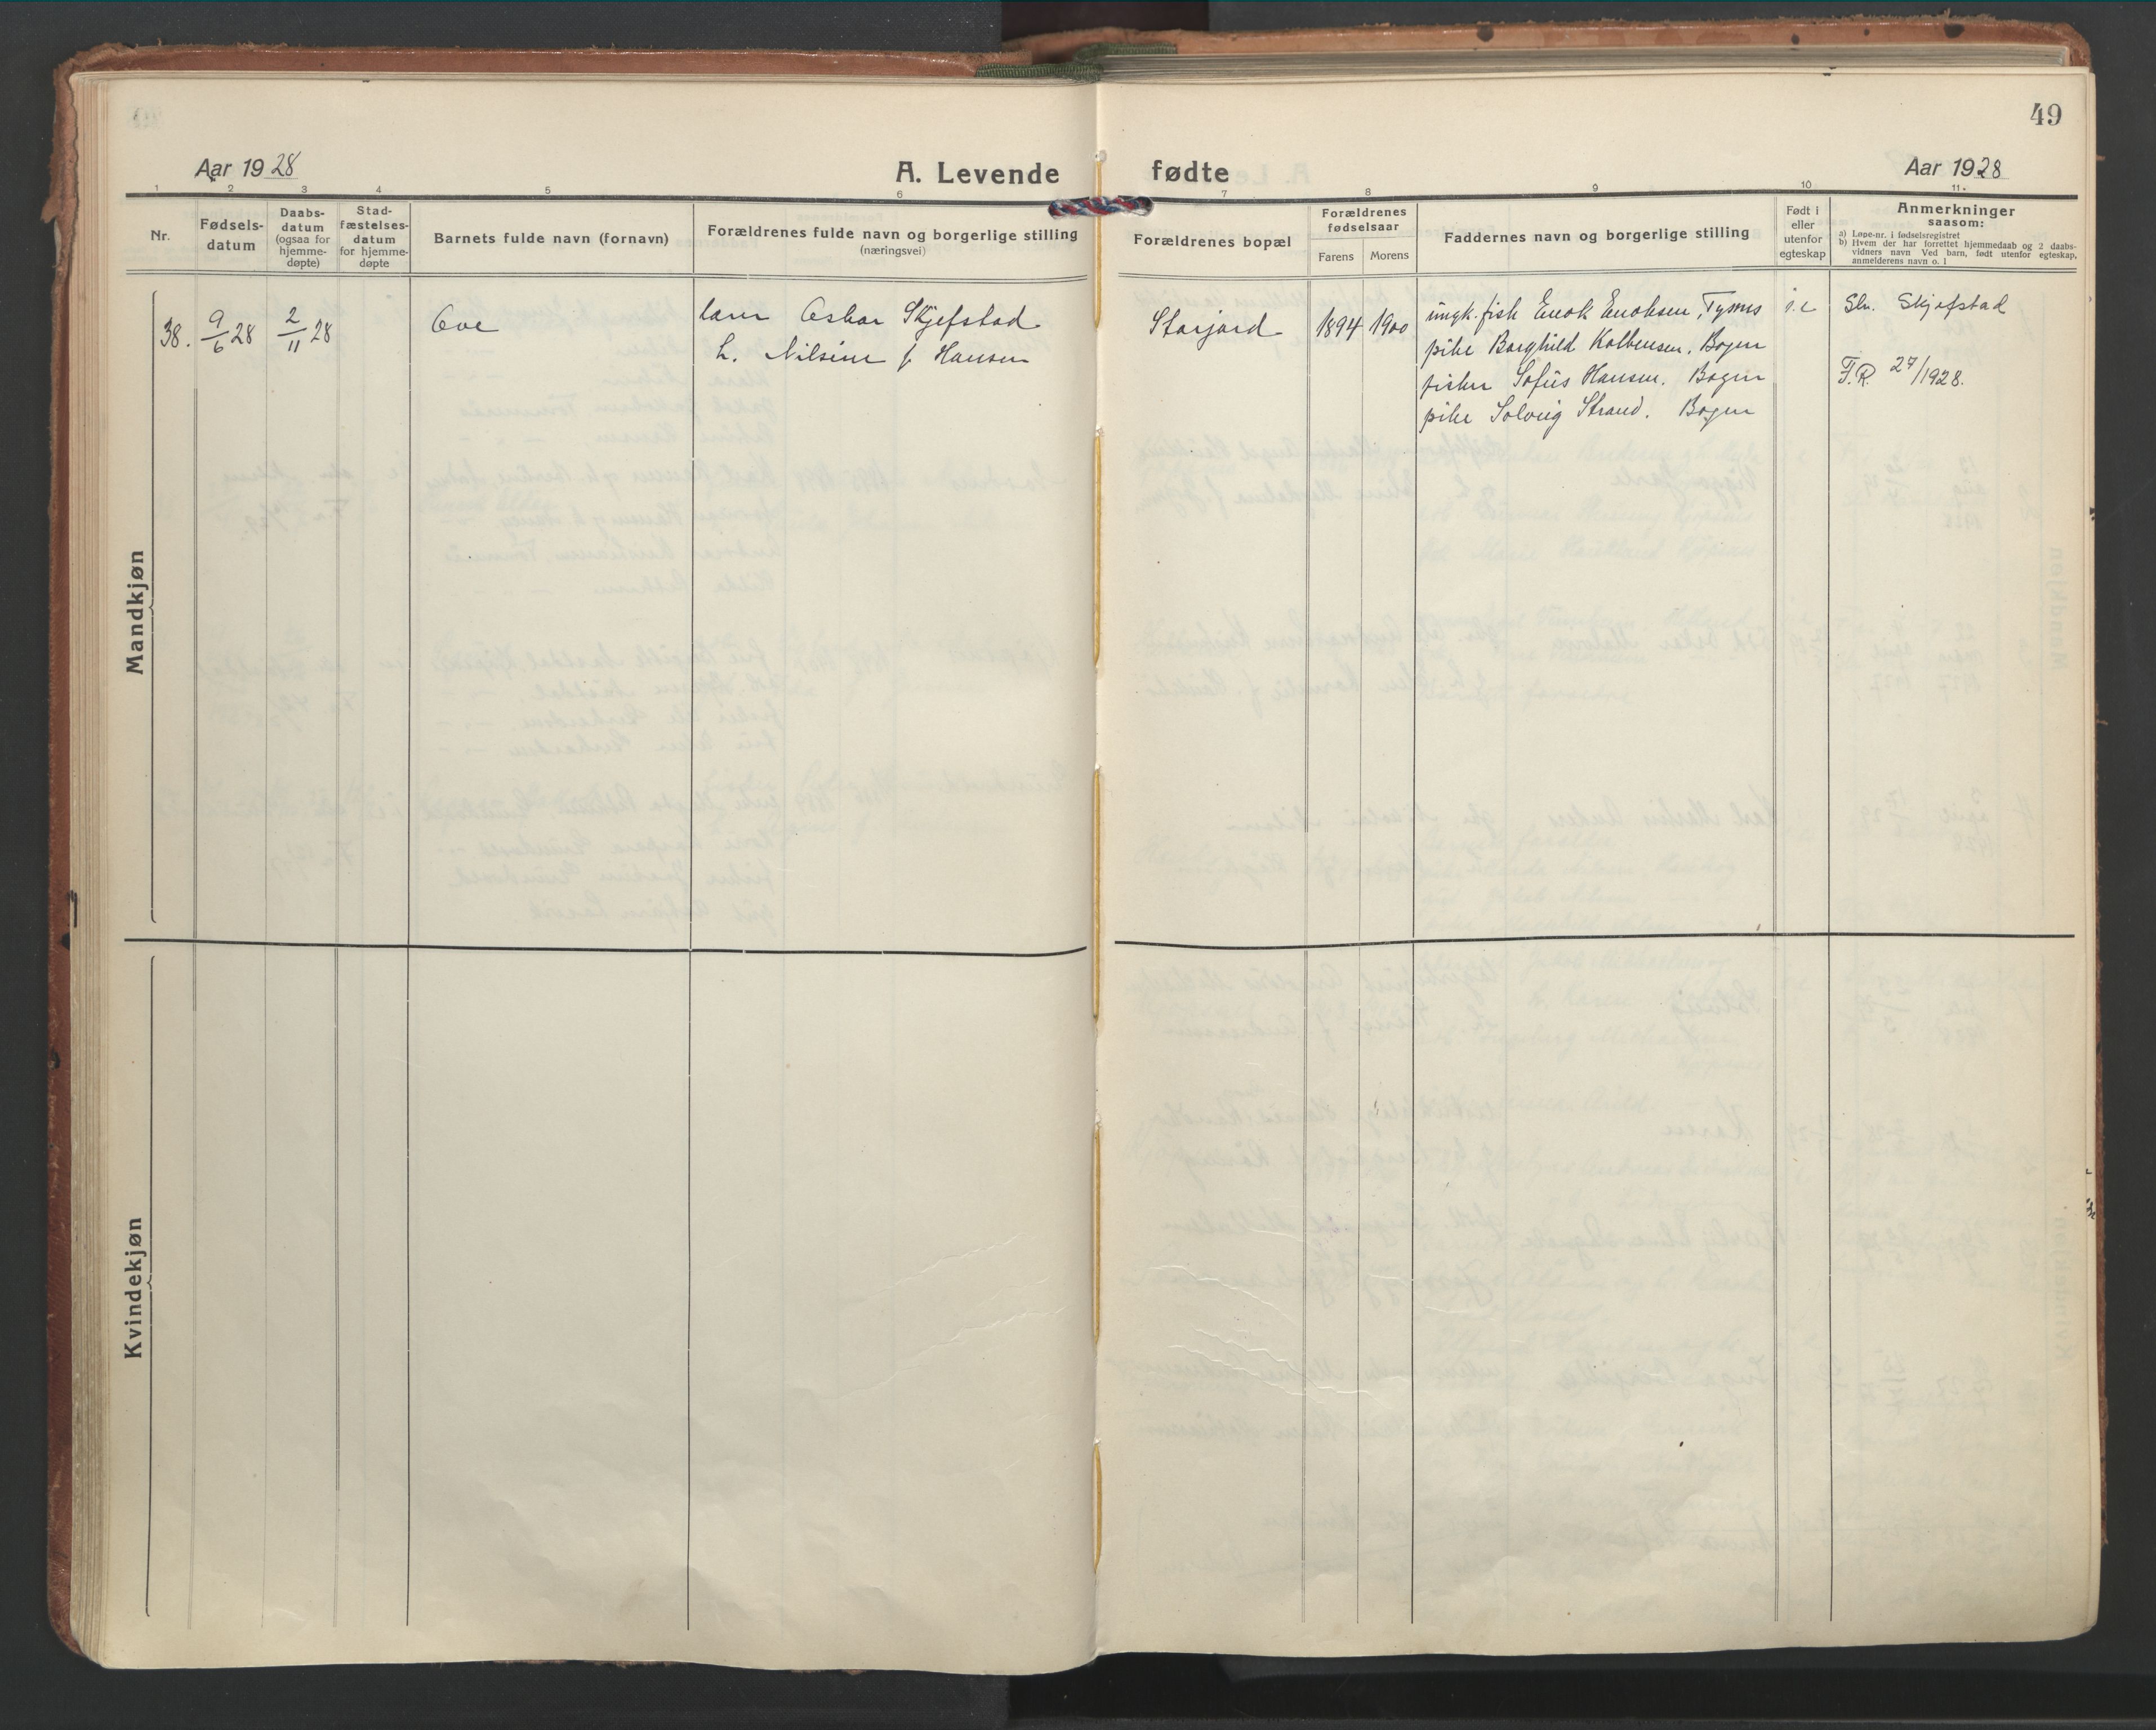 49
Aar 1928
A. Levende fødte
Aar 1928
1 2 3 4 5 6 7 8 9 10 11.
Nr.
Fødsels-
datum
Daabs-
datum
(ogsaa for
hjemme-
døpte)
Stad-
fæstelses-
datum
for hjemme-
døpte
Barnets fulde navn (fornavn)
Forældrenes fulde navn og borgerlige stilling
(næringsvei)
Forældrenes bopæl
Forældrenes
fødselsaar
Farens Morens
Faddernes navn og borgerlige stilling
Født i
eller
utenfor
egteskap
Anmerkninger
saasom:
a) Løpe-nr. i fødselsregistret
b) Hvem der har forrettet hjemmedaab og 2 daabs-
vidners navn Ved barn, født utenfor egteskap,
anmelderens navn o. l
Mandkjøn
38. 9/6 28 2/11 28 Ove
lærer Oskar Skjefstad
h. Nilsine f. Hansen
Storjord 1894 1900
ungk. fisk Enok Enoksen, Tysnes
pike Borghild Kolbensen, Bogen
fisker Sofus Hansen. Bogen
pike Solveig Strand. Bogen
i.e
Skjefstad
F.R. 27/1928.
Kvindekjøn